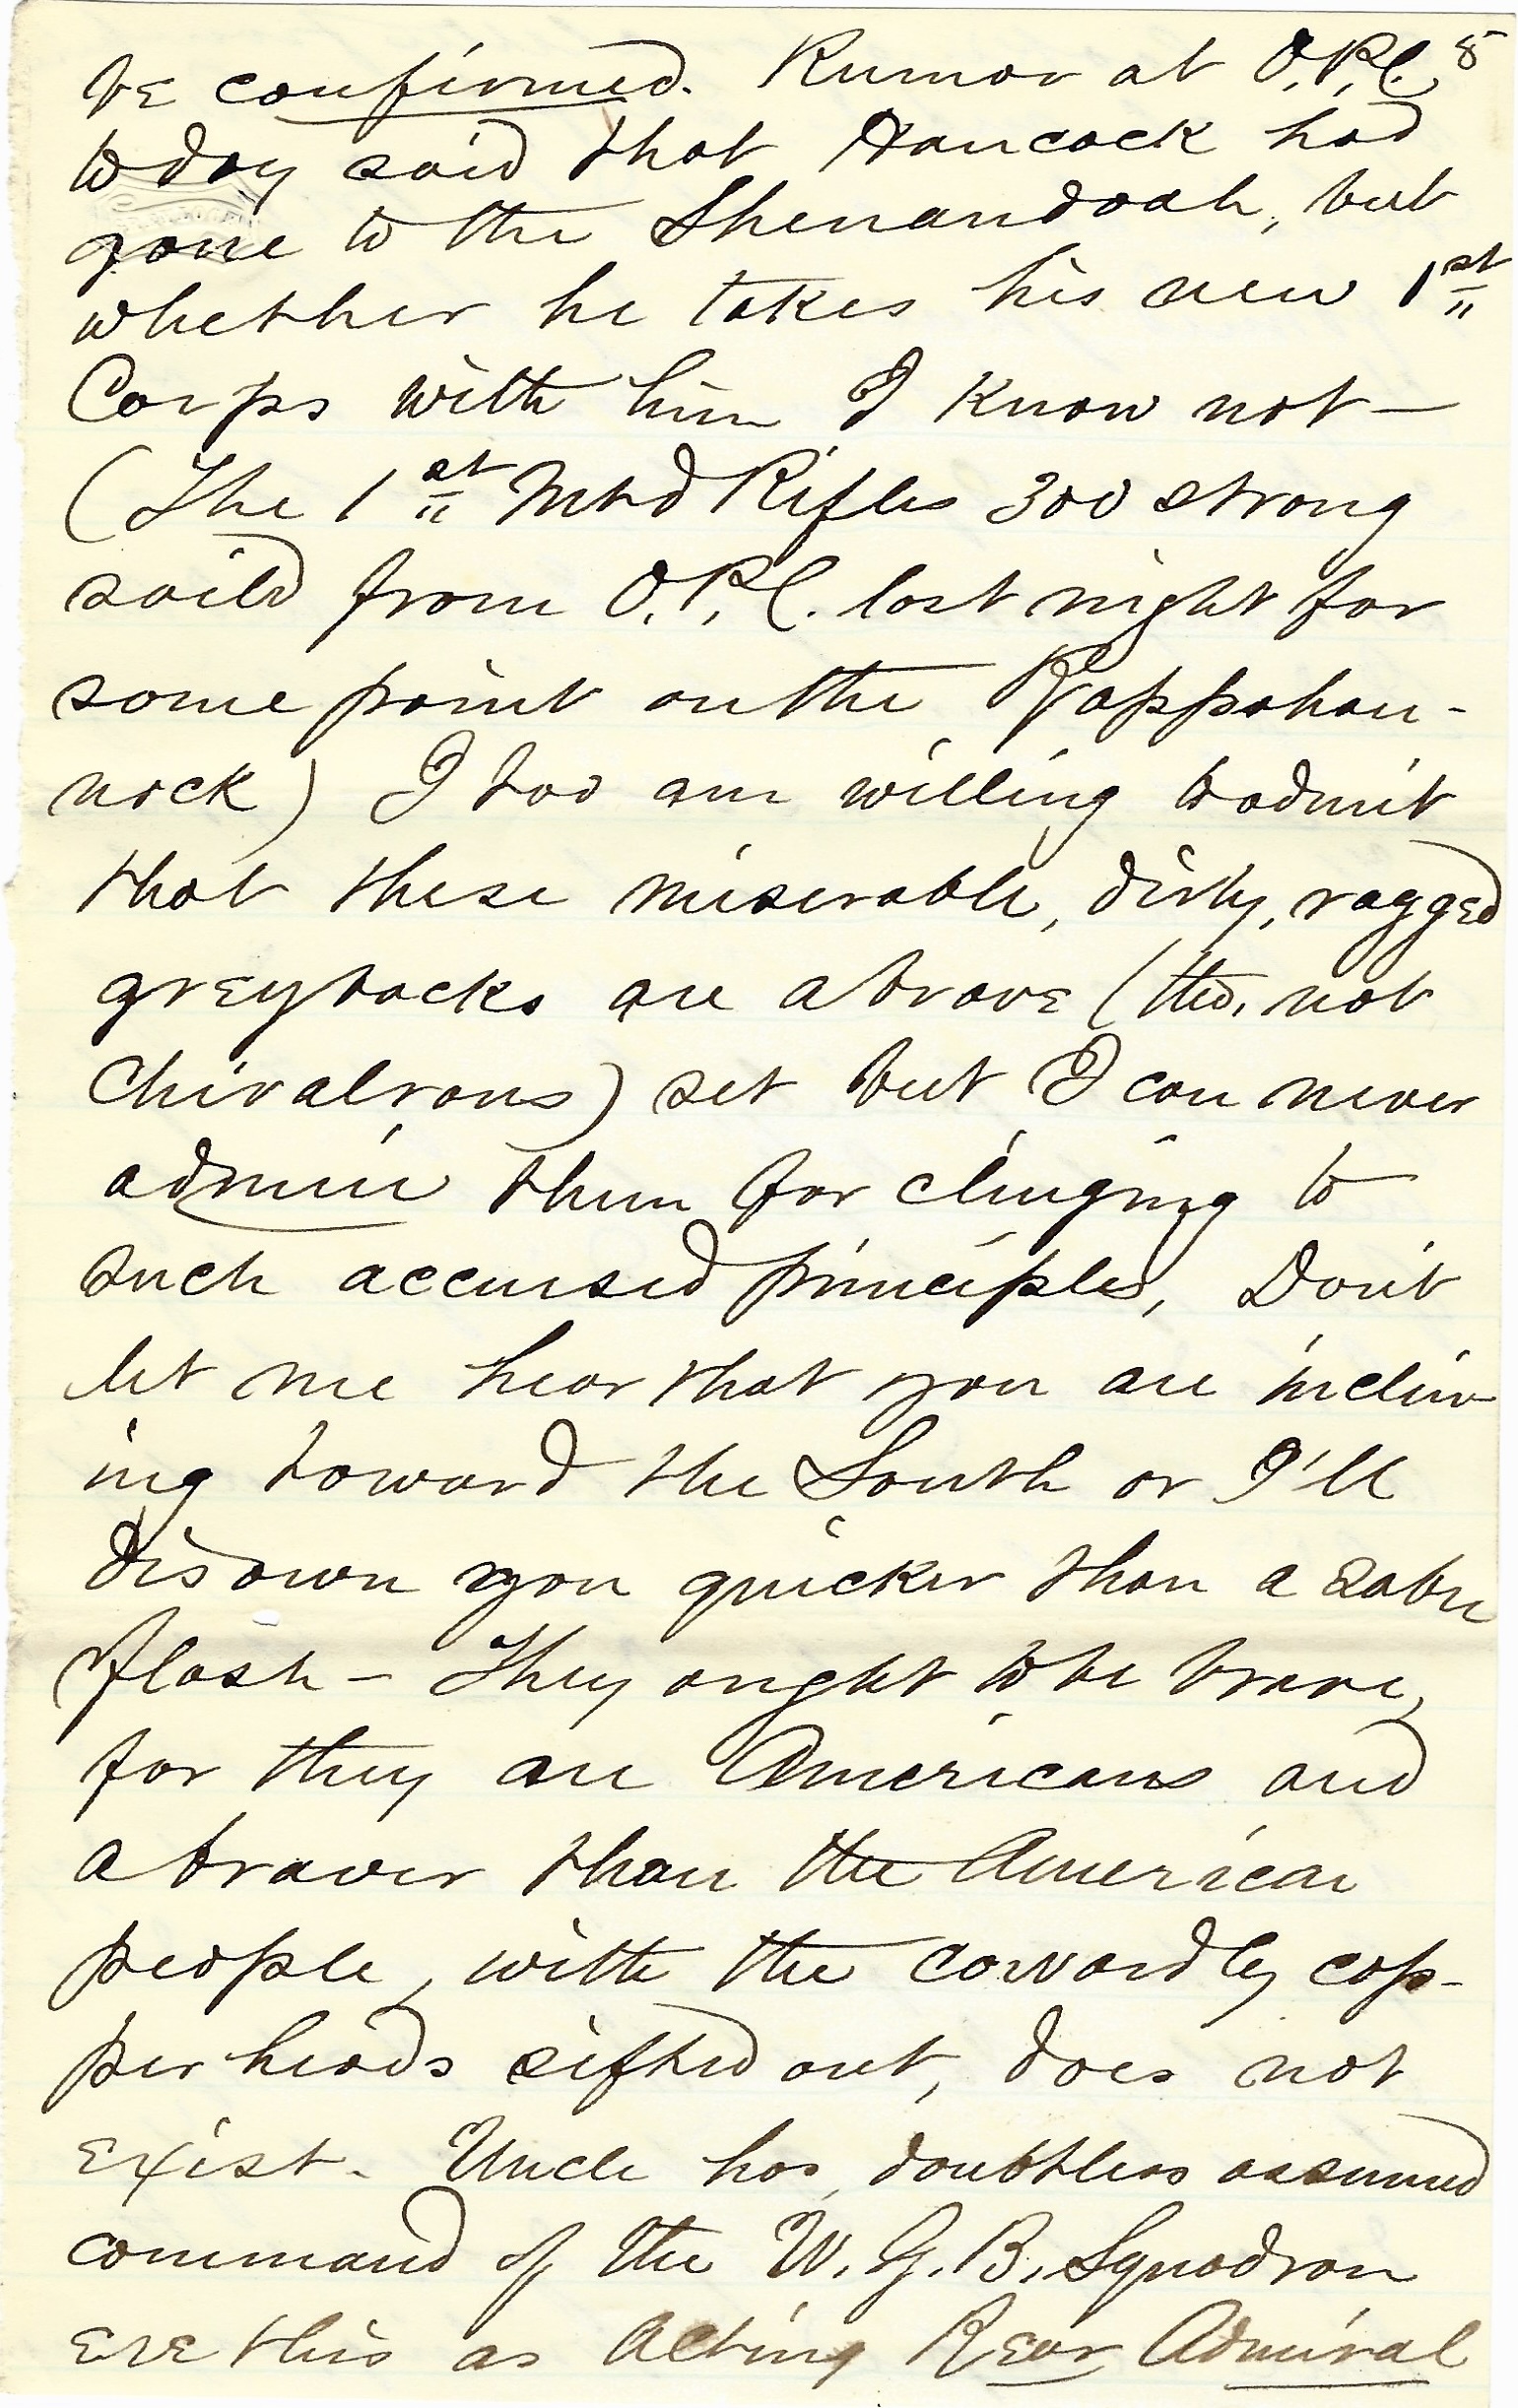 be confirmed. Rumor at O.P.C. 8
today said that Hancock had
gone to the Shenandoah, but
whether he takes his new 1st
Corps with him I know not —
(The 1st Mtd Rifles 300 strong
saild from O.P.C. last night for
some point on the Rappahan-
nock) I too am willing to admit
that these miserable, dirty, ragged
greybacks are a brave (tho, not
Chivalrous) set but I can never
admire them for clinging to
such accursed principles, Don't
let me hear that you are inclin-
ing toward the South or I'll
disown you quicker than a sabre
flash – They ought to be brave,
for they are Americans and
a braver than the American
people, with the cowardly cop-
perheads sifted out, does not
exist. Uncle has, doubtless assumed
command of the W. G. B. Squadron
ere this as Acting Rear Admiral